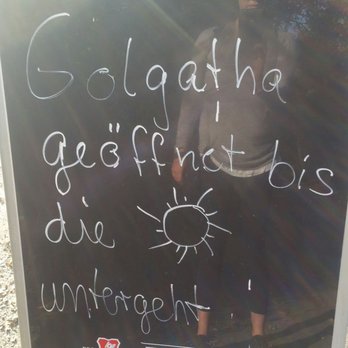 Golgatha
geöffnet bis
die
untergeht!